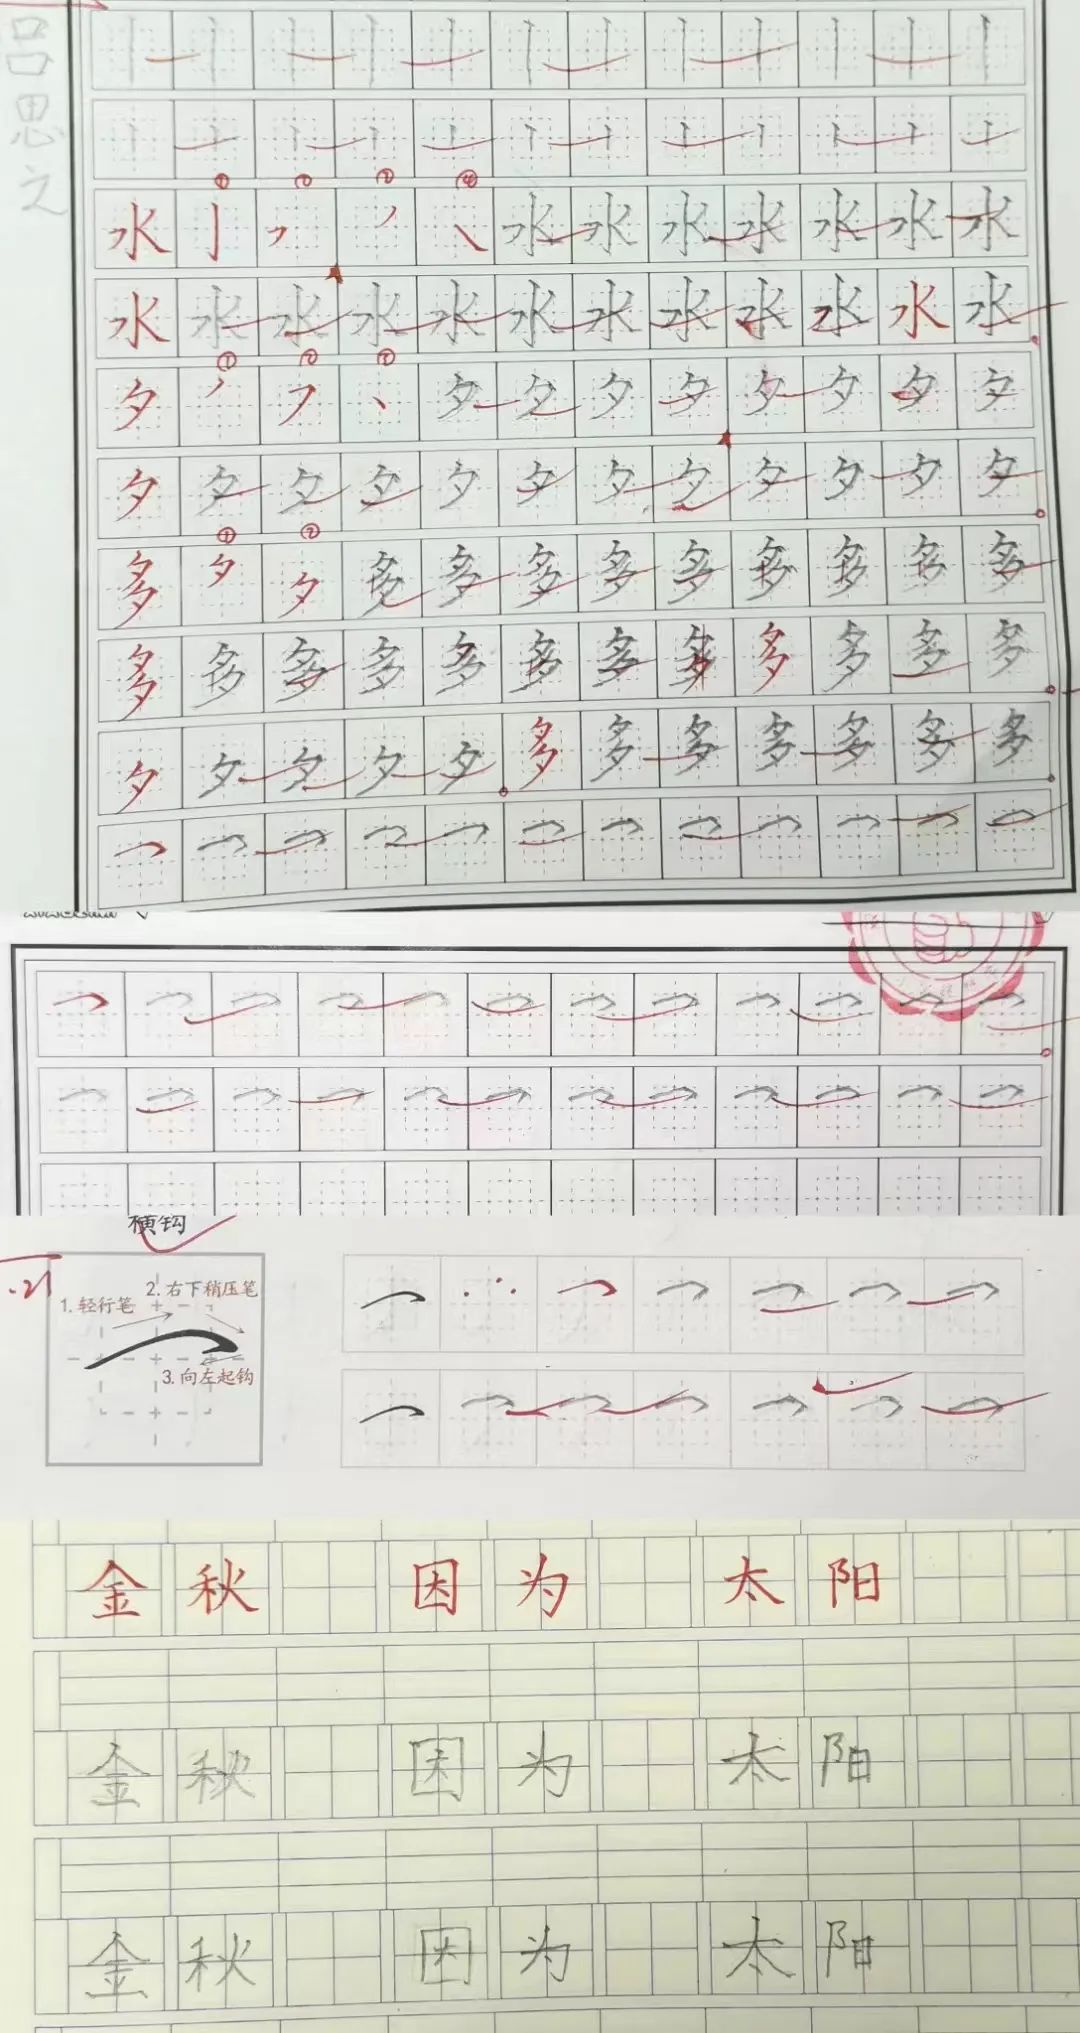 吕思之
① ② ③ ④
水 水 水 水 水 水 水 水
① ② ③
水 水 水 水 水 水 水 水 水 水 水 水
夕 夕 夕 夕 夕 夕 夕 夕 夕
① ②
夕 夕 夕 夕 夕 夕 夕 夕 夕 夕 夕 夕
多 夕 夕 多 多 多 多 多 多 多 多 多
多 多 多 多 多 多 多 多 多 多 多 多
夕 夕 夕 夕 夕 多 多 多 多 多 多 多
横钩
.21
1.轻行笔
2.右下稍压笔
3.向左起钩
金秋 因为 太阳
金秋 因为 太阳
金秋 因为 太阳